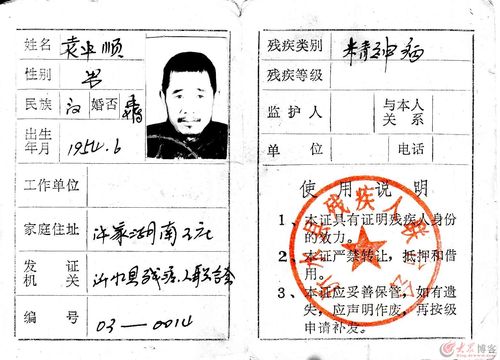 姓名 袁业顺
性别 男
民族 汉 婚否
出生年月 1954.6
工作单位
家庭住址
发证机关
编号 03—0014
残疾类别 精神病
残疾等级
监护人 与本人关系
单位 电话
使用说明
1、本证具有证明残疾人身份
的效力。
2、本证严禁转让，抵押和借
用。
3、本证应妥善保管，如有遗
失，应声明作废，再按级
申请补发。
县残疾人联合会
博客